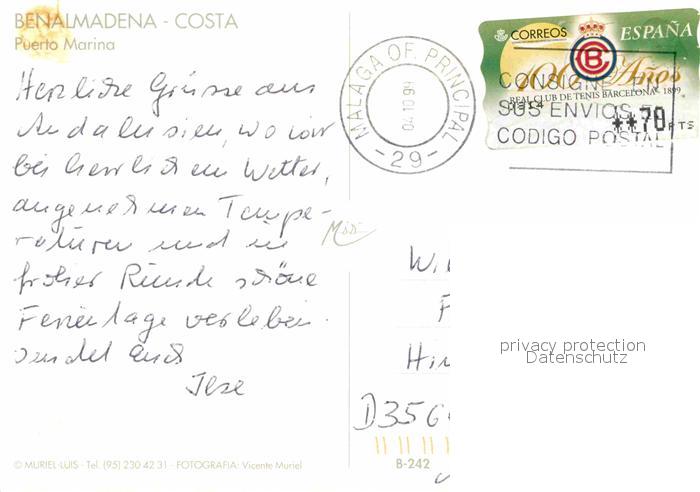 BENALMADENA - COSTA
Puerto Marina
Herzliche Grüsse aus
Andalusien, wo wir
bei herrlichem Wetter,
angenehmen Tempe-
raturen und in
froher Runde schöne
Ferientage verleben.
sendet euch
Ilse
© MURIEL-LUIS · Tel. (95) 230 42 31 · FOTOGRAFIA: Vicente Muriel
B-242
MALAGA OF PRINCIPAL
04 10 99
- 29 -
CORREOS
ESPAÑA
100 Años
REAL CLUB DE TENIS BARCELONA 1899
CONSIGNE
SUS ENVIOS E
CODIGO POSTAL
**70 PTS
Hin
D356
privacy protection
Datenschutz